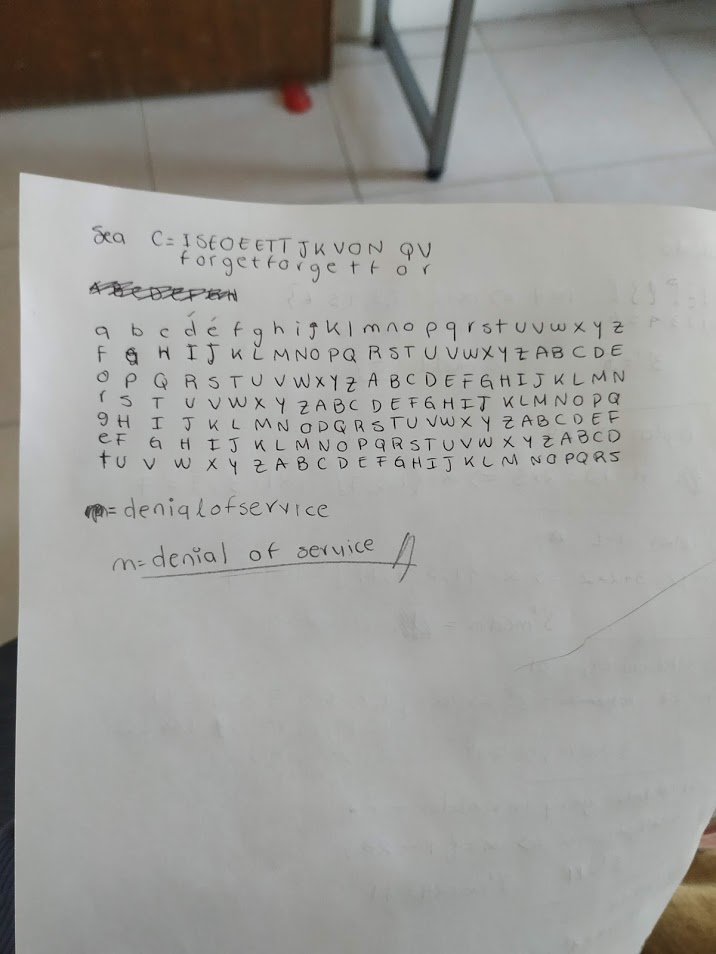 Sea C= ISEOEETT JKVON QV
forgetforgett or
a b c d e f g h i j k l m n o p q r s t u v w x y z
F G H I J K L M N O P Q R S T U V W X Y Z A B C D E
O P Q R S T U V W X Y Z A B C D E F G H I J K L M N
r S T U V W X Y Z A B C D E F G H I J K L M N O P Q
g H I J K L M N O P Q R S T U V W X Y Z A B C D E F
e F G H I J K L M N O P Q R S T U V W X Y Z A B C D
t U V W X Y Z A B C D E F G H I J K L M N O P Q R S
m= denialofservice
m= denial of service